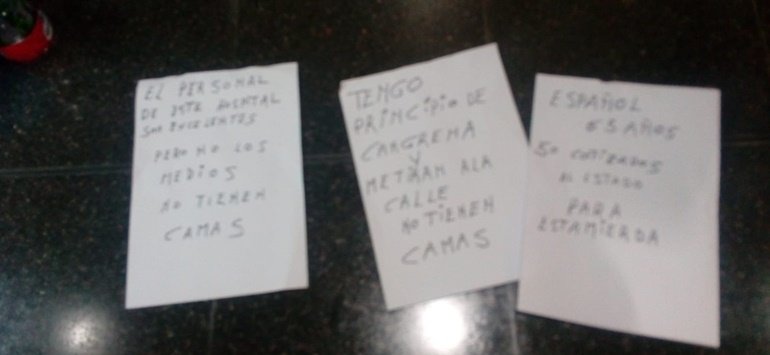 EL PERSONAL
DE ESTE HOSPITAL
SON EXCELENTES
PERO NO LOS
MEDIOS
NO TIENEN
CAMAS
TENGO
PRINCIPIO DE
CANGRENA
Y
METIRAN ALA
CALLE
NO TIENEN
CAMAS
ESPAÑOL
63 AÑOS
50 COTIZADOS
AL ESTADO
PARA
ESTAMIERDA